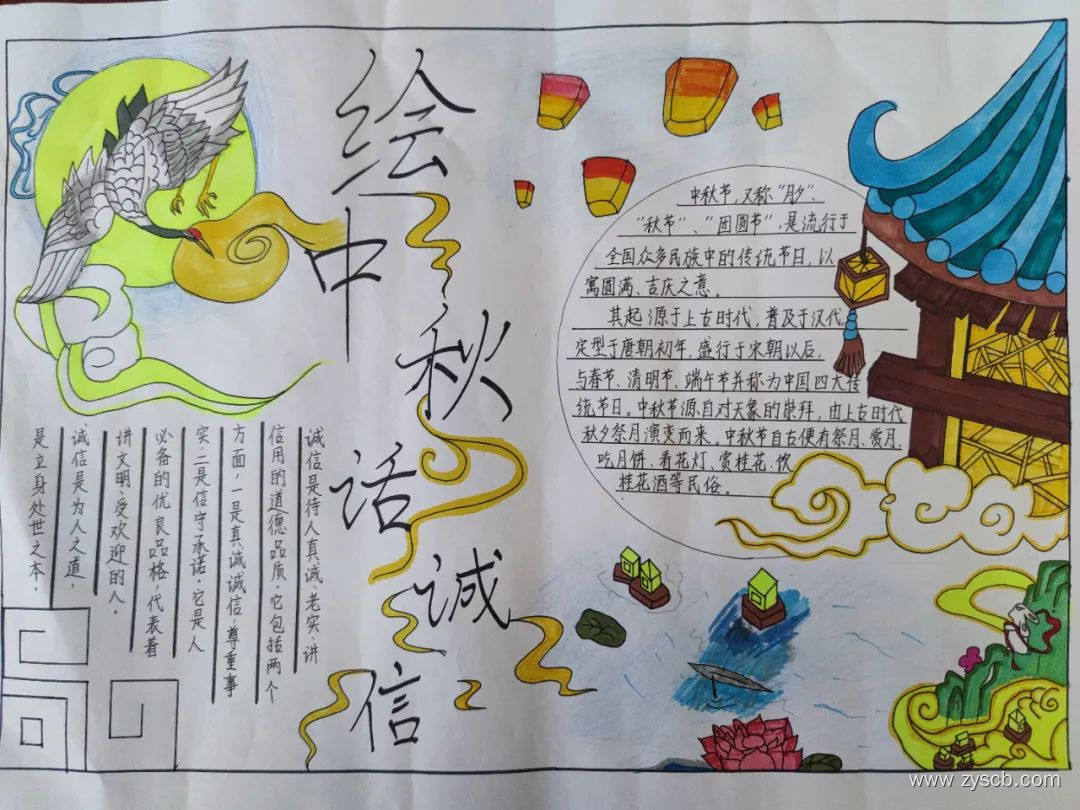 绘中秋话诚信
中秋节,又称“月夕”、
“秋节”、“团圆节”,是流行于
全国众多民族中的传统节日,以
寓圆满、吉庆之意。
其起源于上古时代,普及于汉代,
定型于唐朝初年,盛行于宋朝以后,
与春节、清明节、端午节并称为中国四大传
统节日。中秋节源自对天象的崇拜,由上古时代
秋夕祭月演变而来。中秋节自古便有祭月、赏月、
吃月饼、看花灯、赏桂花、饮
桂花酒等民俗。
诚信是待人真诚老实,讲
信用的道德品质。它包括两个
方面,一是真诚诚信,尊重事
实,二是信守承诺。它是人
必备的优良品格,代表着
讲文明,受欢迎的人。
诚信是为人之道,
是立身处世之本。
www.zyscb.com